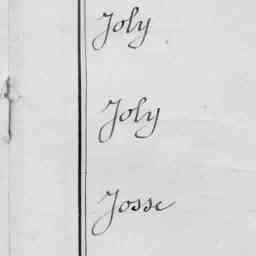 Joly
Joly
Josse